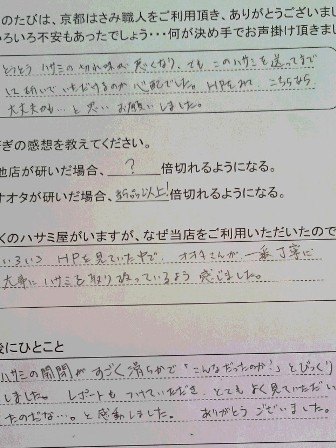 のたびは、京都はさみ職人をご利用頂き、ありがとうございま
いろいろ不安もあったでしょう・・・何が決め手でお声掛け頂きまし
とうとう ハサミの切れ味が悪くなり、でも このハサミを送ってまで
に研いで いただけるのか 心配でした。HPをみて こちらなら
大丈夫かも…と思い お願いしました。
ぎの感想を教えてください。
他店が研いだ場合、 ? 倍切れるようになる。
オオタが研いだ場合、新品以上!倍切れるようになる。
くのハサミ屋がいますが、なぜ当店をご利用いただいたので
いろいろ HPを見ていた中で、オオタさんが 一番 丁寧に
大事に ハサミを取り扱っているよう 感じました。
後にひとこと
ハサミの開閉が すごく滑らかで「こんなだったのか!」とびっくり
しました。 レポートも つけていただき、とても よく見ていただい
たのだな…。と感動しました。 ありがとう ございました。